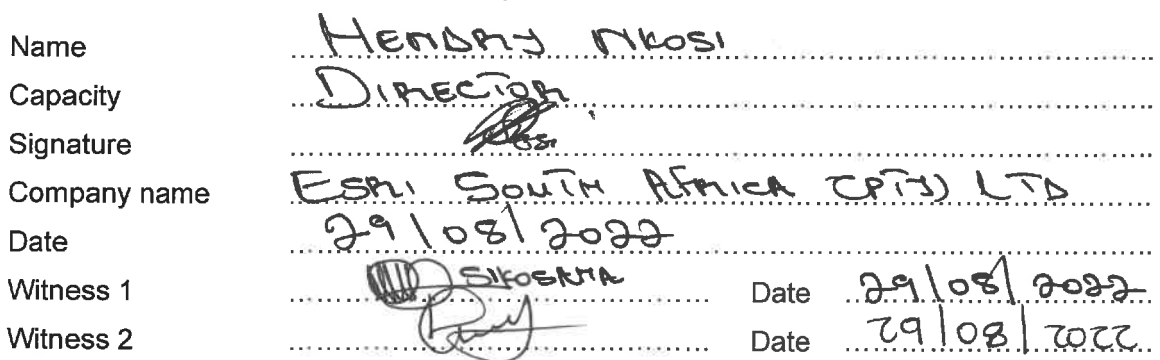 Name HENDRY NKOSI
Capacity DIRECTOR
Signature
Company name ESRI SOUTH AFRICA (PTY) LTD
Date 29/08/2022
Witness 1 Date 29/08/2022
Witness 2 Date 29/08/2022